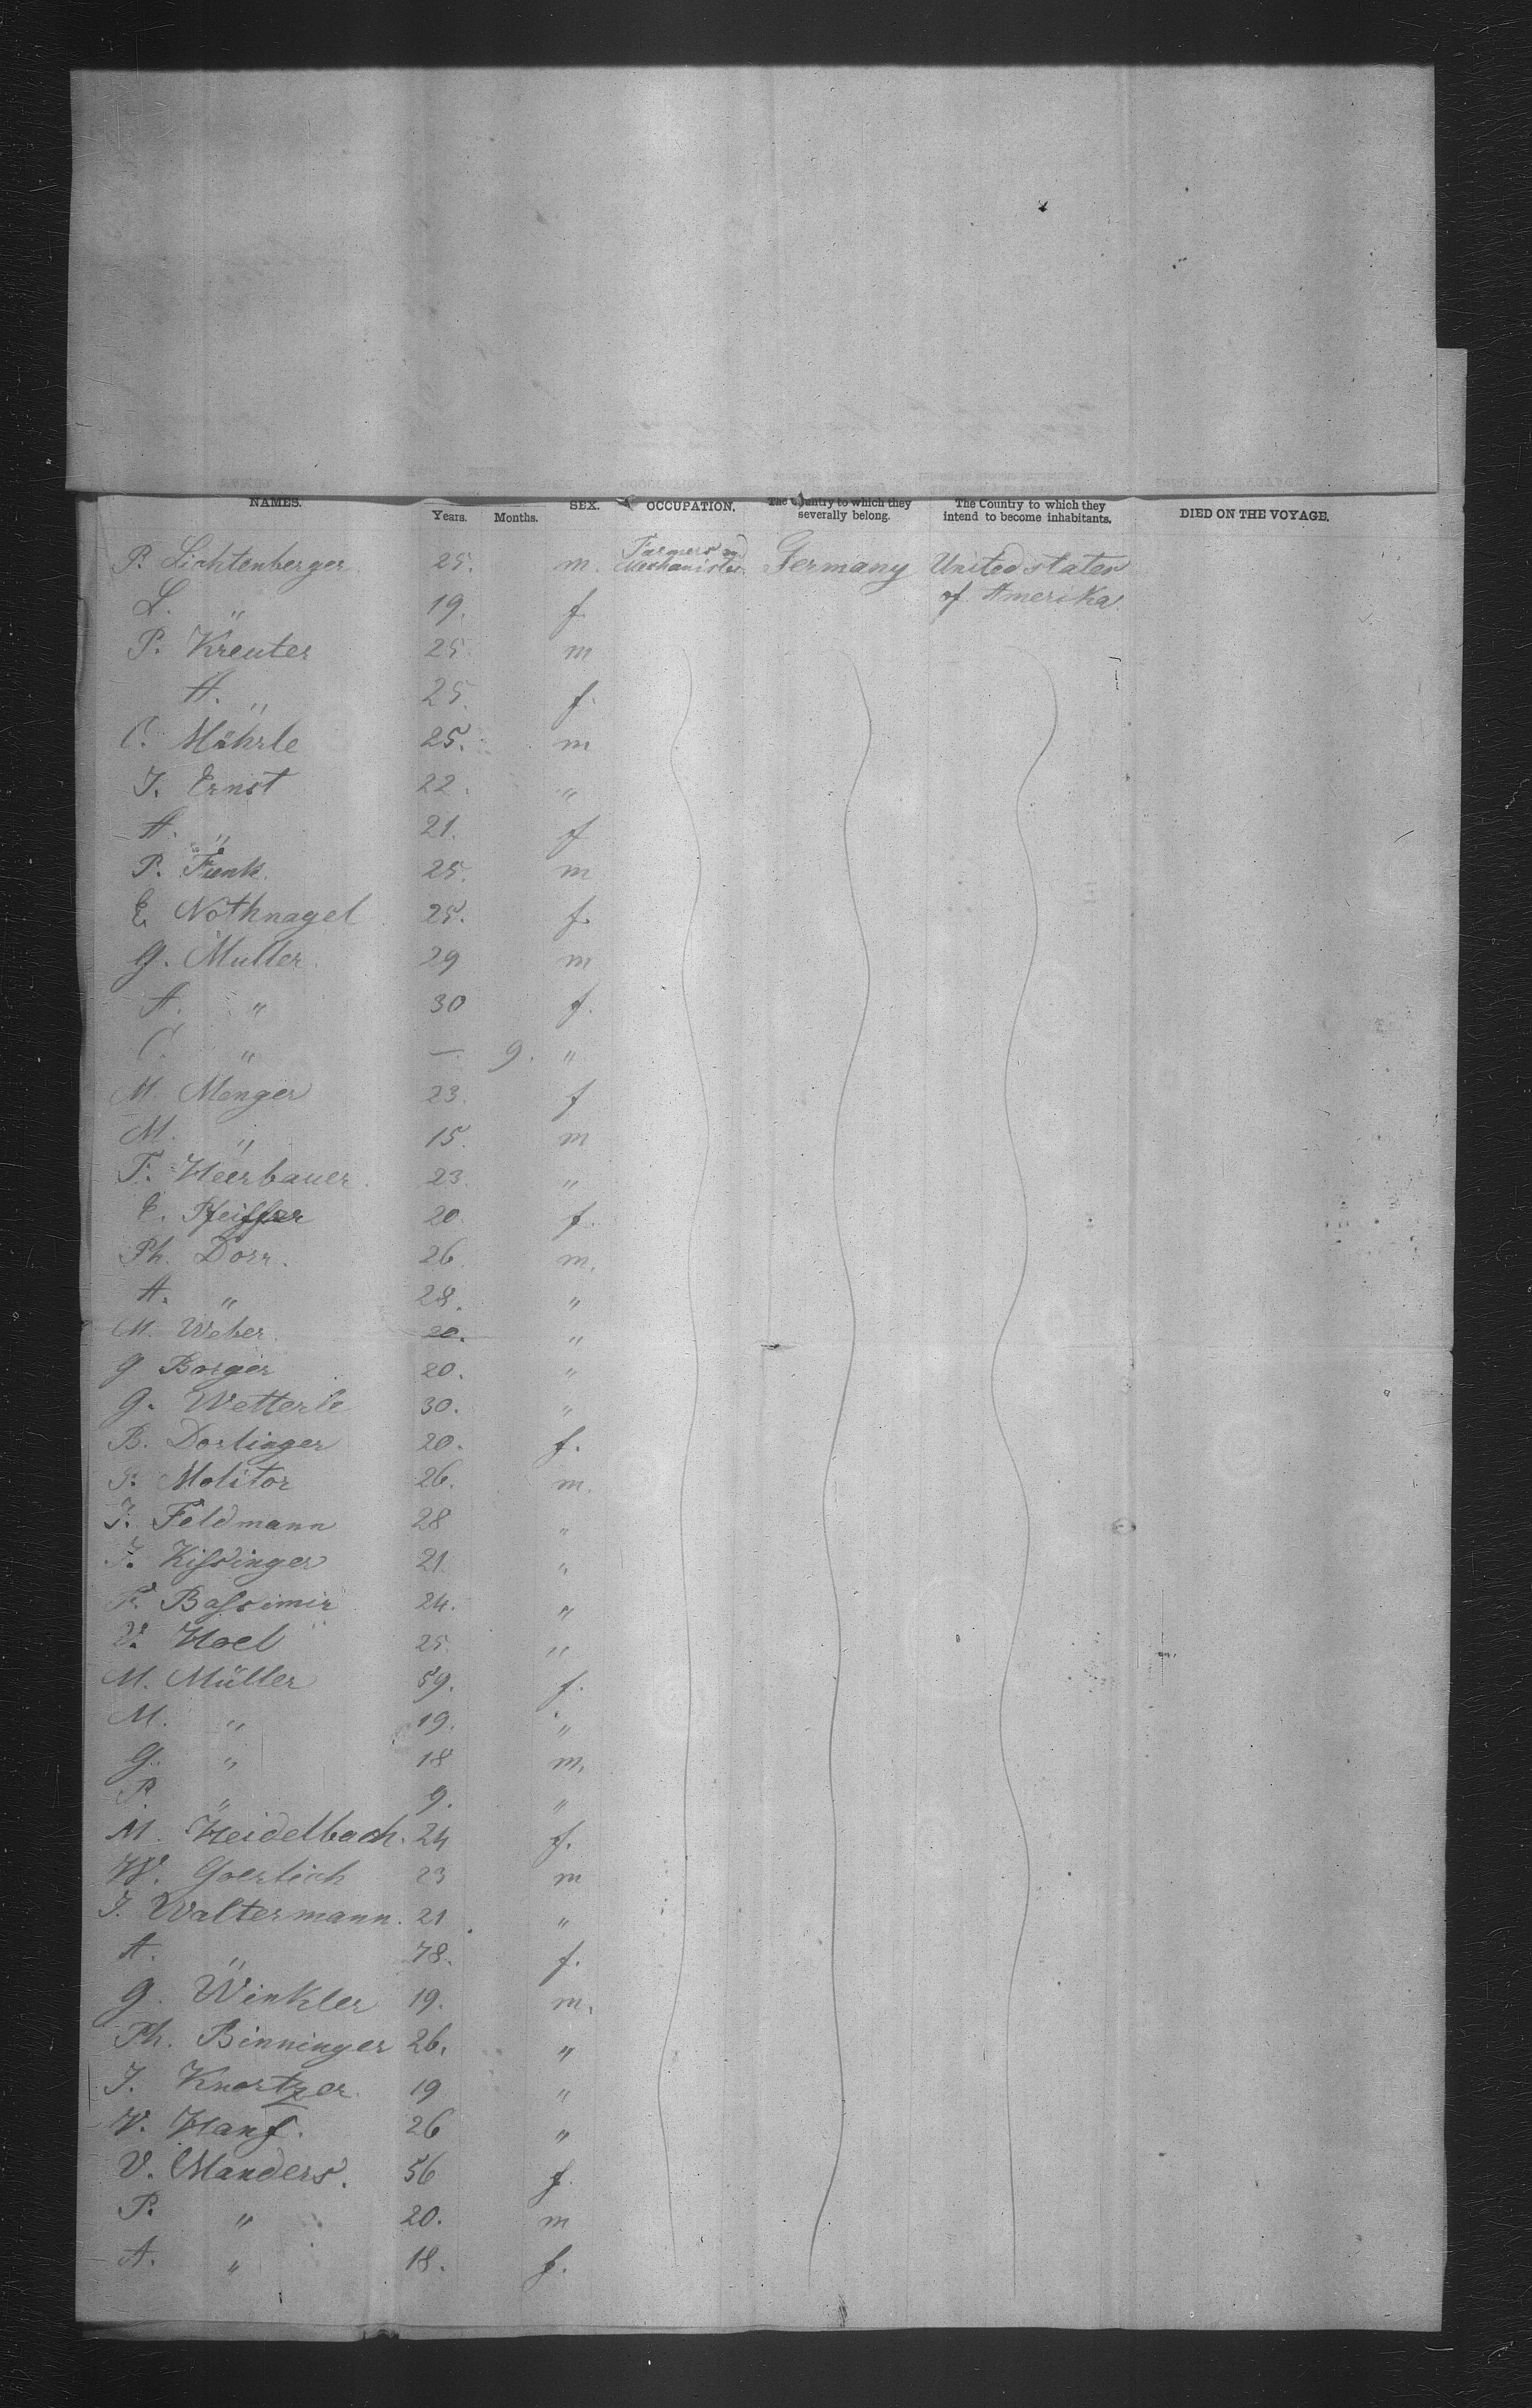 NAMES. Years. Months. SEX. OCCUPATION. The Country to which they severally belong. The Country to which they intend to become inhabitants. DIED ON THE VOYAGE.
P. Lichtenberger 25. m. Farmers and Mechanister. Germany United states
of Amerika.
L. " 19. f
P. Kreuter 25. m
A. " 25. f.
C. Möhrle 25. m
J. Ernst 22. "
A. " 21. f
P. Funk. 25. m
E. Nothnagel 25. f.
G. Muller. 29 m
A. " 30 f.
C. " — 9. "
M. Menger 23. f
M. " 15. m
F. Heerbauer. 23. "
E. Pfeiffer 20. f.
Ph. Dorr. 26. m.
A. " 28. "
M. Weber. 20. "
G Borger 20. "
G. Wetterle 30. "
B. Dorlinger 20. f.
P. Molitor 26. m.
J. Feldmann 28 "
J. Kissinger 21. "
F. Bassimir 24. "
V. Hoel 25 "
M. Müller 59. f.
M. " 19. "
G. " 18 m.
P. " 9. "
M. Heidelbach. 24 f.
W. Goerlich 23 m
J. Waltermann. 21 "
A. " 78. f.
G. Winkler 19. m.
Ph. Binninger 26. "
J. Knortzer. 19 "
V. Hanf. 26 "
V. Manders. 56 f.
P. " 20. m
A. " 18. f.